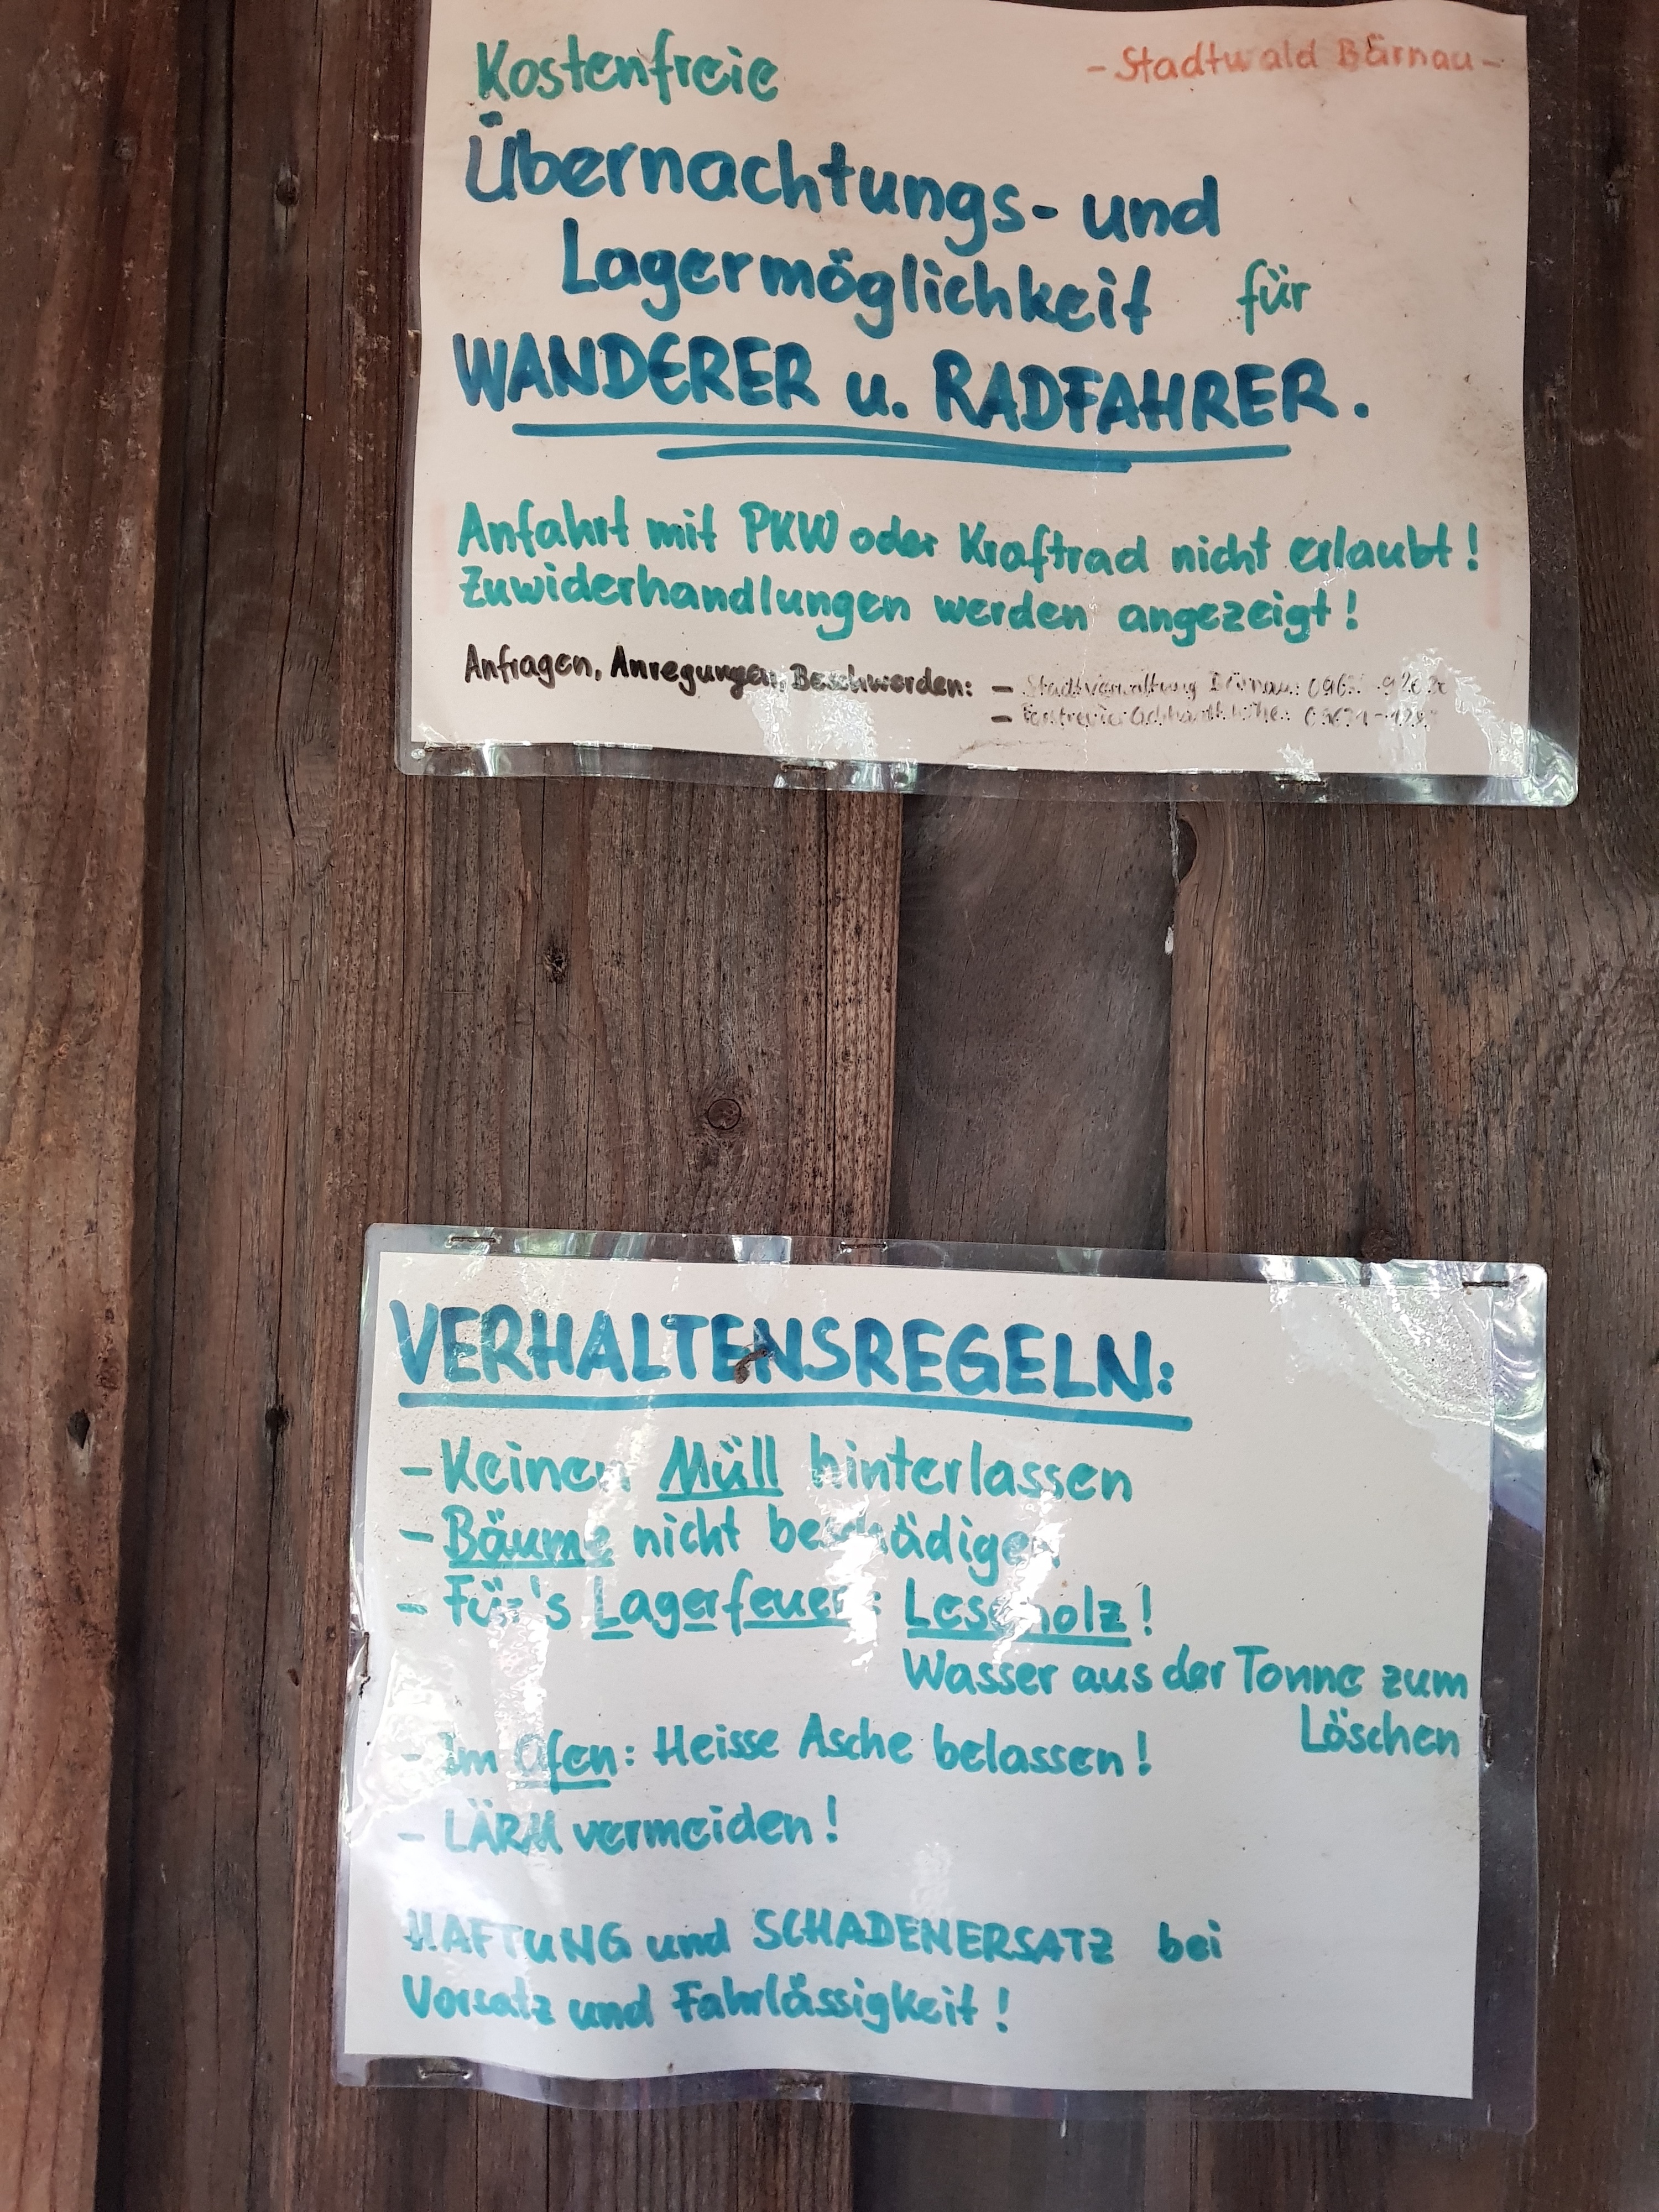 Kostenfreie -Stadtwald Bärnau-
Übernachtungs- und
Lagermöglichkeit für
WANDERER u. RADFAHRER.
Anfahrt mit PKW oder Kraftrad nicht erlaubt!
Zuwiderhandlungen werden angezeigt!
Anfragen, Anregungen, Beschwerden: - Stadtverwaltung Bärnau:
-
VERHALTENSREGELN:
- Keinen Müll hinterlassen
- Bäume nicht beschädigen
- Für's Lagerfeuer: Leseholz!
Wasser aus der Tonne zum
Löschen
- Im Ofen: Heisse Asche belassen!
- LÄRM vermeiden!
HAFTUNG und SCHADENERSATZ bei
Vorsatz und Fahrlässigkeit!